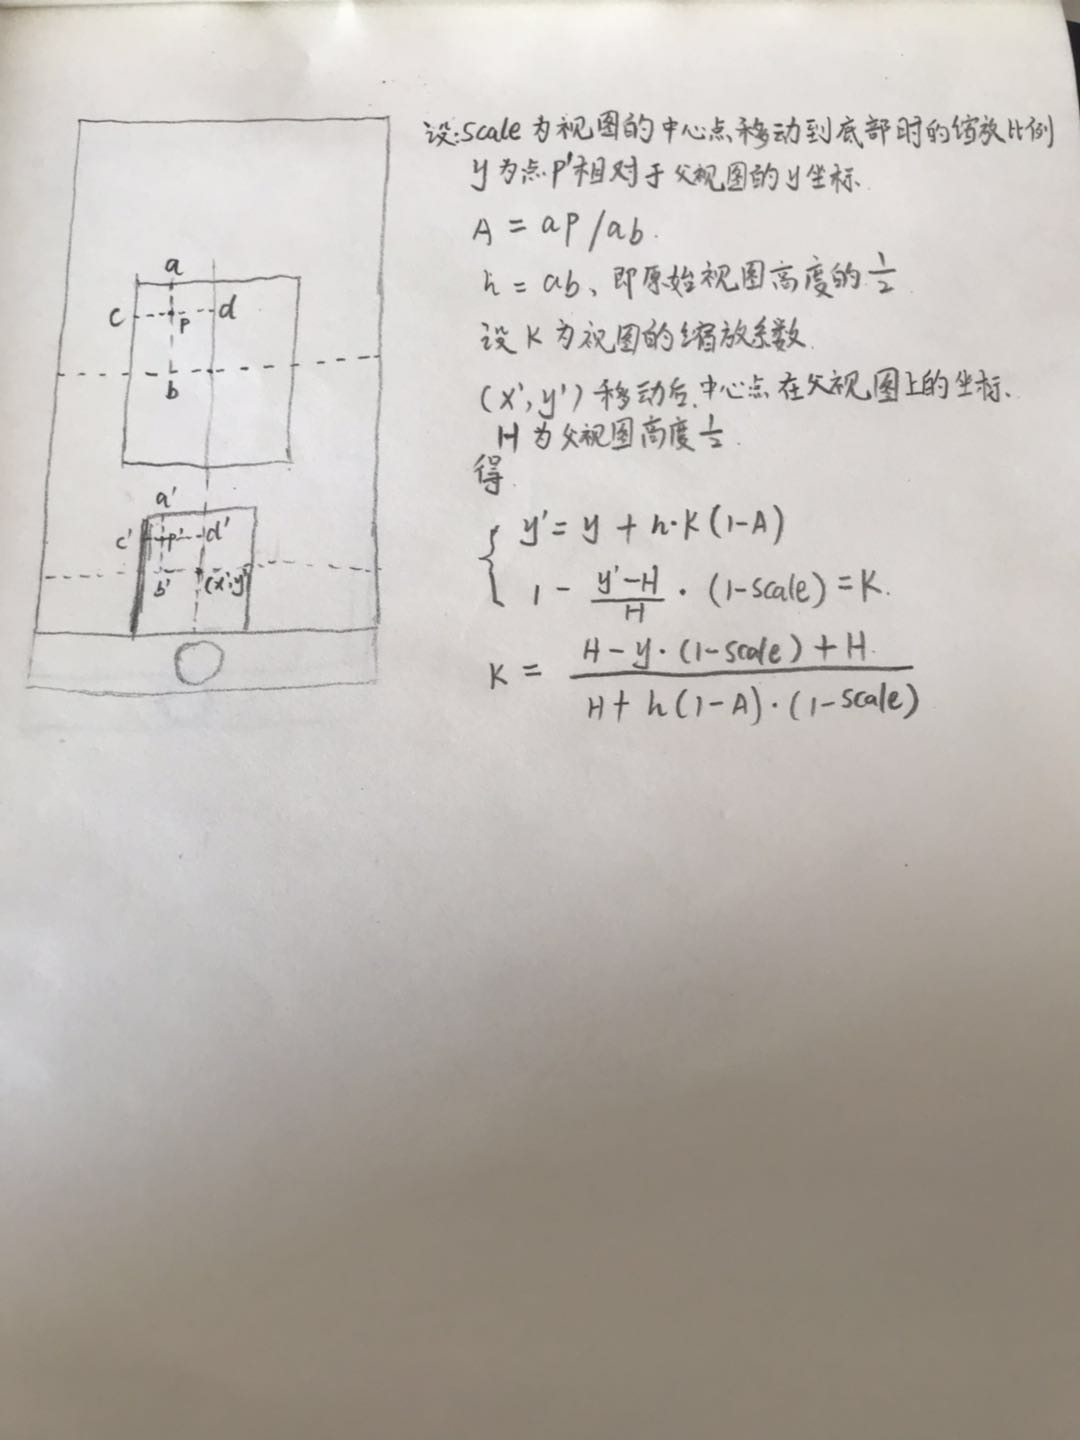 设:scale为视图的中心点移动到底部时的缩放比例
y为点p'相对于父视图的y坐标.
A = ap/ab.
h = ab、即原始视图高度的1/2
设K为视图的缩放系数.
(x',y')移动后,中心点在父视图上的坐标、
H为父视图高度1/2.
得.
y' = y + h·K(1-A)
1 - (y'-H)/H · (1-scale) = K.
K = (H-y·(1-scale)+H.)/(H+h(1-A)·(1-scale))
a
c p d
b
a'
c' p' d'
b' (x',y')